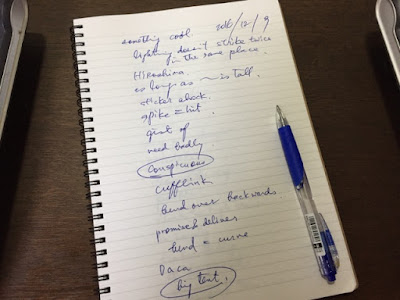 something cool 2016/12/9
lightning doesn't strike twice
in the same place.
Hiroshima.
as long as ~ is tall.
sticker shock.
spike = hit
gist of
need badly
conspicuous
cufflink
bend over backwards.
promised delivers
bend = curve
Daca
big tent.